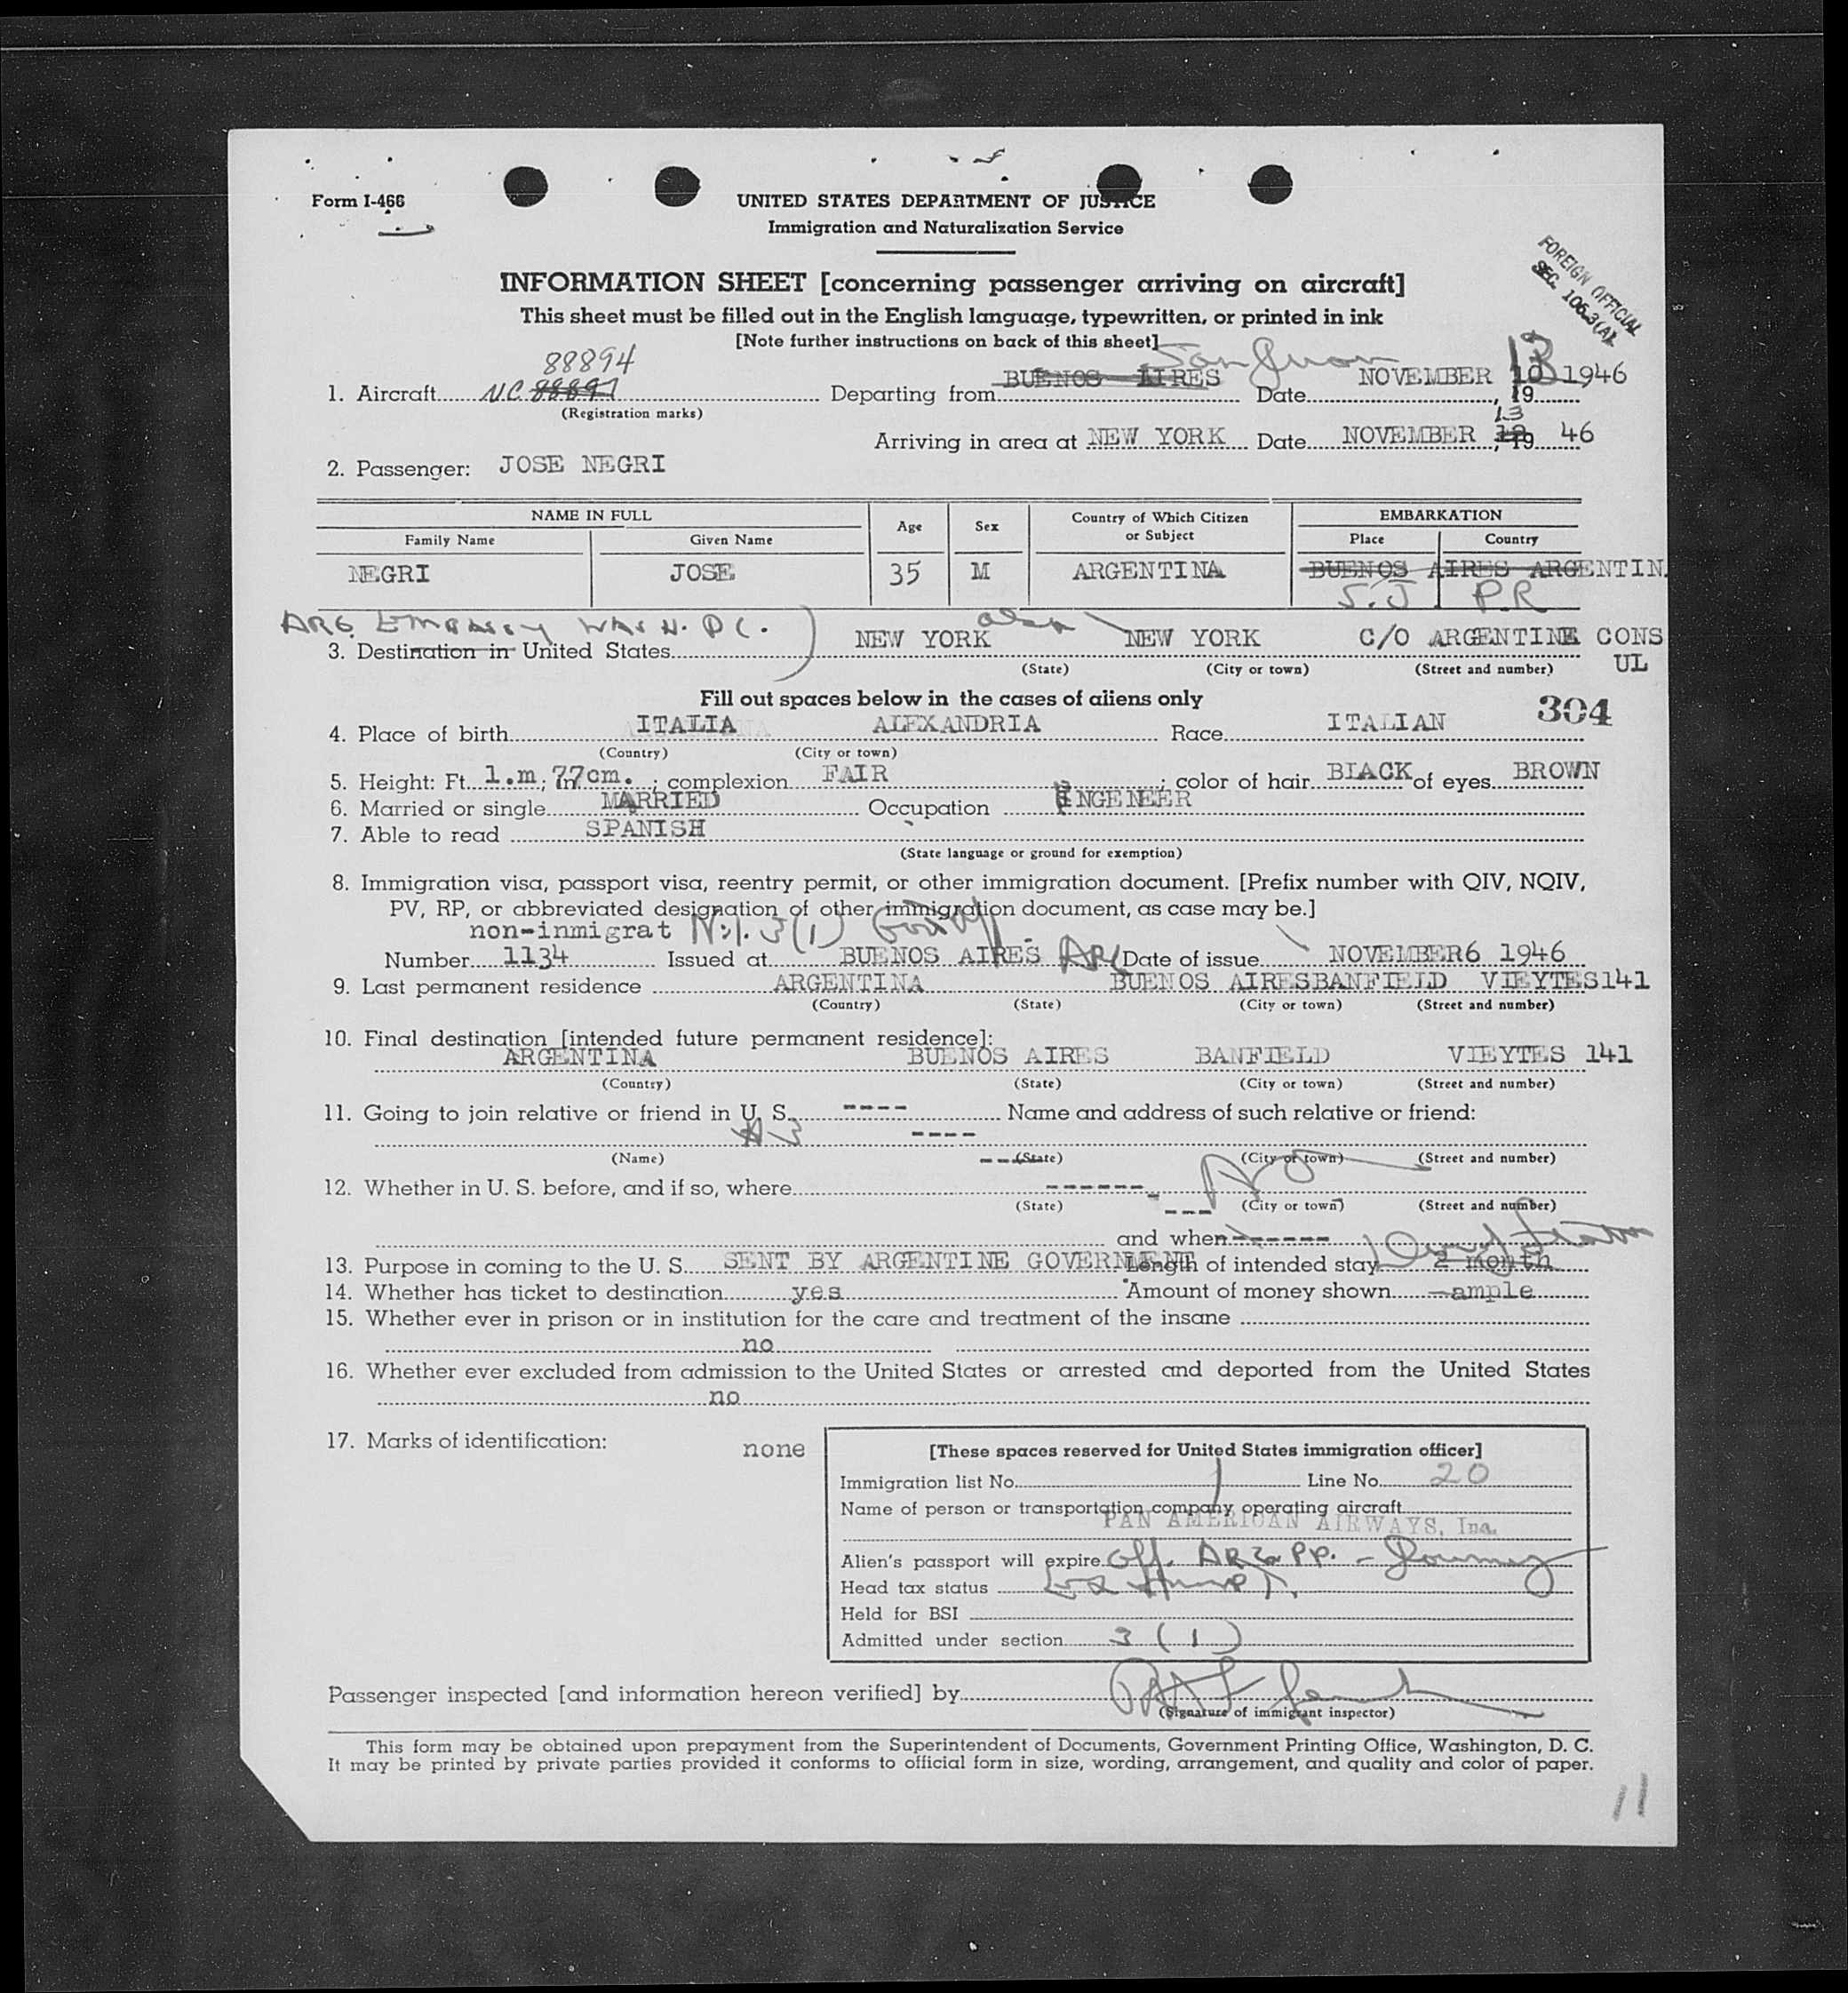 Form I-466
UNITED STATES DEPARTMENT OF JUSTICE
Immigration and Naturalization Service
FOREIGN OFFICIAL
SEC. 106.3(A)
INFORMATION SHEET [concerning passenger arriving on aircraft]
This sheet must be filled out in the English language, typewritten, or printed in ink
[Note further instructions on back of this sheet]
88894 San Juan 13
1. Aircraft NC 88897 Departing from BUENOS AIRES Date NOVEMBER 10 1946, 19
(Registration marks)
13
Arriving in area at NEW YORK Date NOVEMBER 12, 19 46
2. Passenger: JOSE NEGRI
NAME IN FULL Age Sex Country of Which Citizen or Subject EMBARKATION
Family Name Given Name Place Country
NEGRI JOSE 35 M ARGENTINA BUENOS AIRES ARGENTIN
S.J. P.R
ARG. EMBASSY WASH. DC. ) also
3. Destination in United States NEW YORK NEW YORK C/O ARGENTINE CONS
UL
(State) (City or town) (Street and number)
Fill out spaces below in the cases of aliens only
304
4. Place of birth ITALIA ALEXANDRIA Race ITALIAN
(Country) (City or town)
5. Height: Ft. 1.m; In. 77cm.; complexion FAIR; color of hair BLACK of eyes BROWN
6. Married or single MARRIED Occupation INGENEER
7. Able to read SPANISH
(State language or ground for exemption)
8. Immigration visa, passport visa, reentry permit, or other immigration document. [Prefix number with QIV, NQIV,
PV, RP, or abbreviated designation of other immigration document, as case may be.]
non-inmigrat 3(1)
Number 1134 Issued at BUENOS AIRES ARG Date of issue NOVEMBER6 1946
9. Last permanent residence ARGENTINA BUENOS AIRES BANFIELD VIEYTES141
(Country) (State) (City or town) (Street and number)
10. Final destination [intended future permanent residence]:
ARGENTINA BUENOS AIRES BANFIELD VIEYTES 141
(Country) (State) (City or town) (Street and number)
11. Going to join relative or friend in U. S. ---- Name and address of such relative or friend:
A3 ----
(Name) ---(State) (City or town) (Street and number)
12. Whether in U. S. before, and if so, where ------- No
(State) --- (City or town) (Street and number)
and when ------
13. Purpose in coming to the U. S. SENT BY ARGENTINE GOVERNMENT Length of intended stay 2 month
14. Whether has ticket to destination yes Amount of money shown ample
15. Whether ever in prison or in institution for the care and treatment of the insane
no
16. Whether ever excluded from admission to the United States or arrested and deported from the United States
no
17. Marks of identification: none
[These spaces reserved for United States immigration officer]
Immigration list No. 1 Line No. 20
Name of person or transportation company operating aircraft
PAN AMERICAN AIRWAYS, Inc.
Alien's passport will expire Off. ARG. PP. - Journey
Head tax status
Held for BSI
Admitted under section 3 (1)
Passenger inspected [and information hereon verified] by
(Signature of immigrant inspector)
This form may be obtained upon prepayment from the Superintendent of Documents, Government Printing Office, Washington, D. C.
It may be printed by private parties provided it conforms to official form in size, wording, arrangement, and quality and color of paper.
11